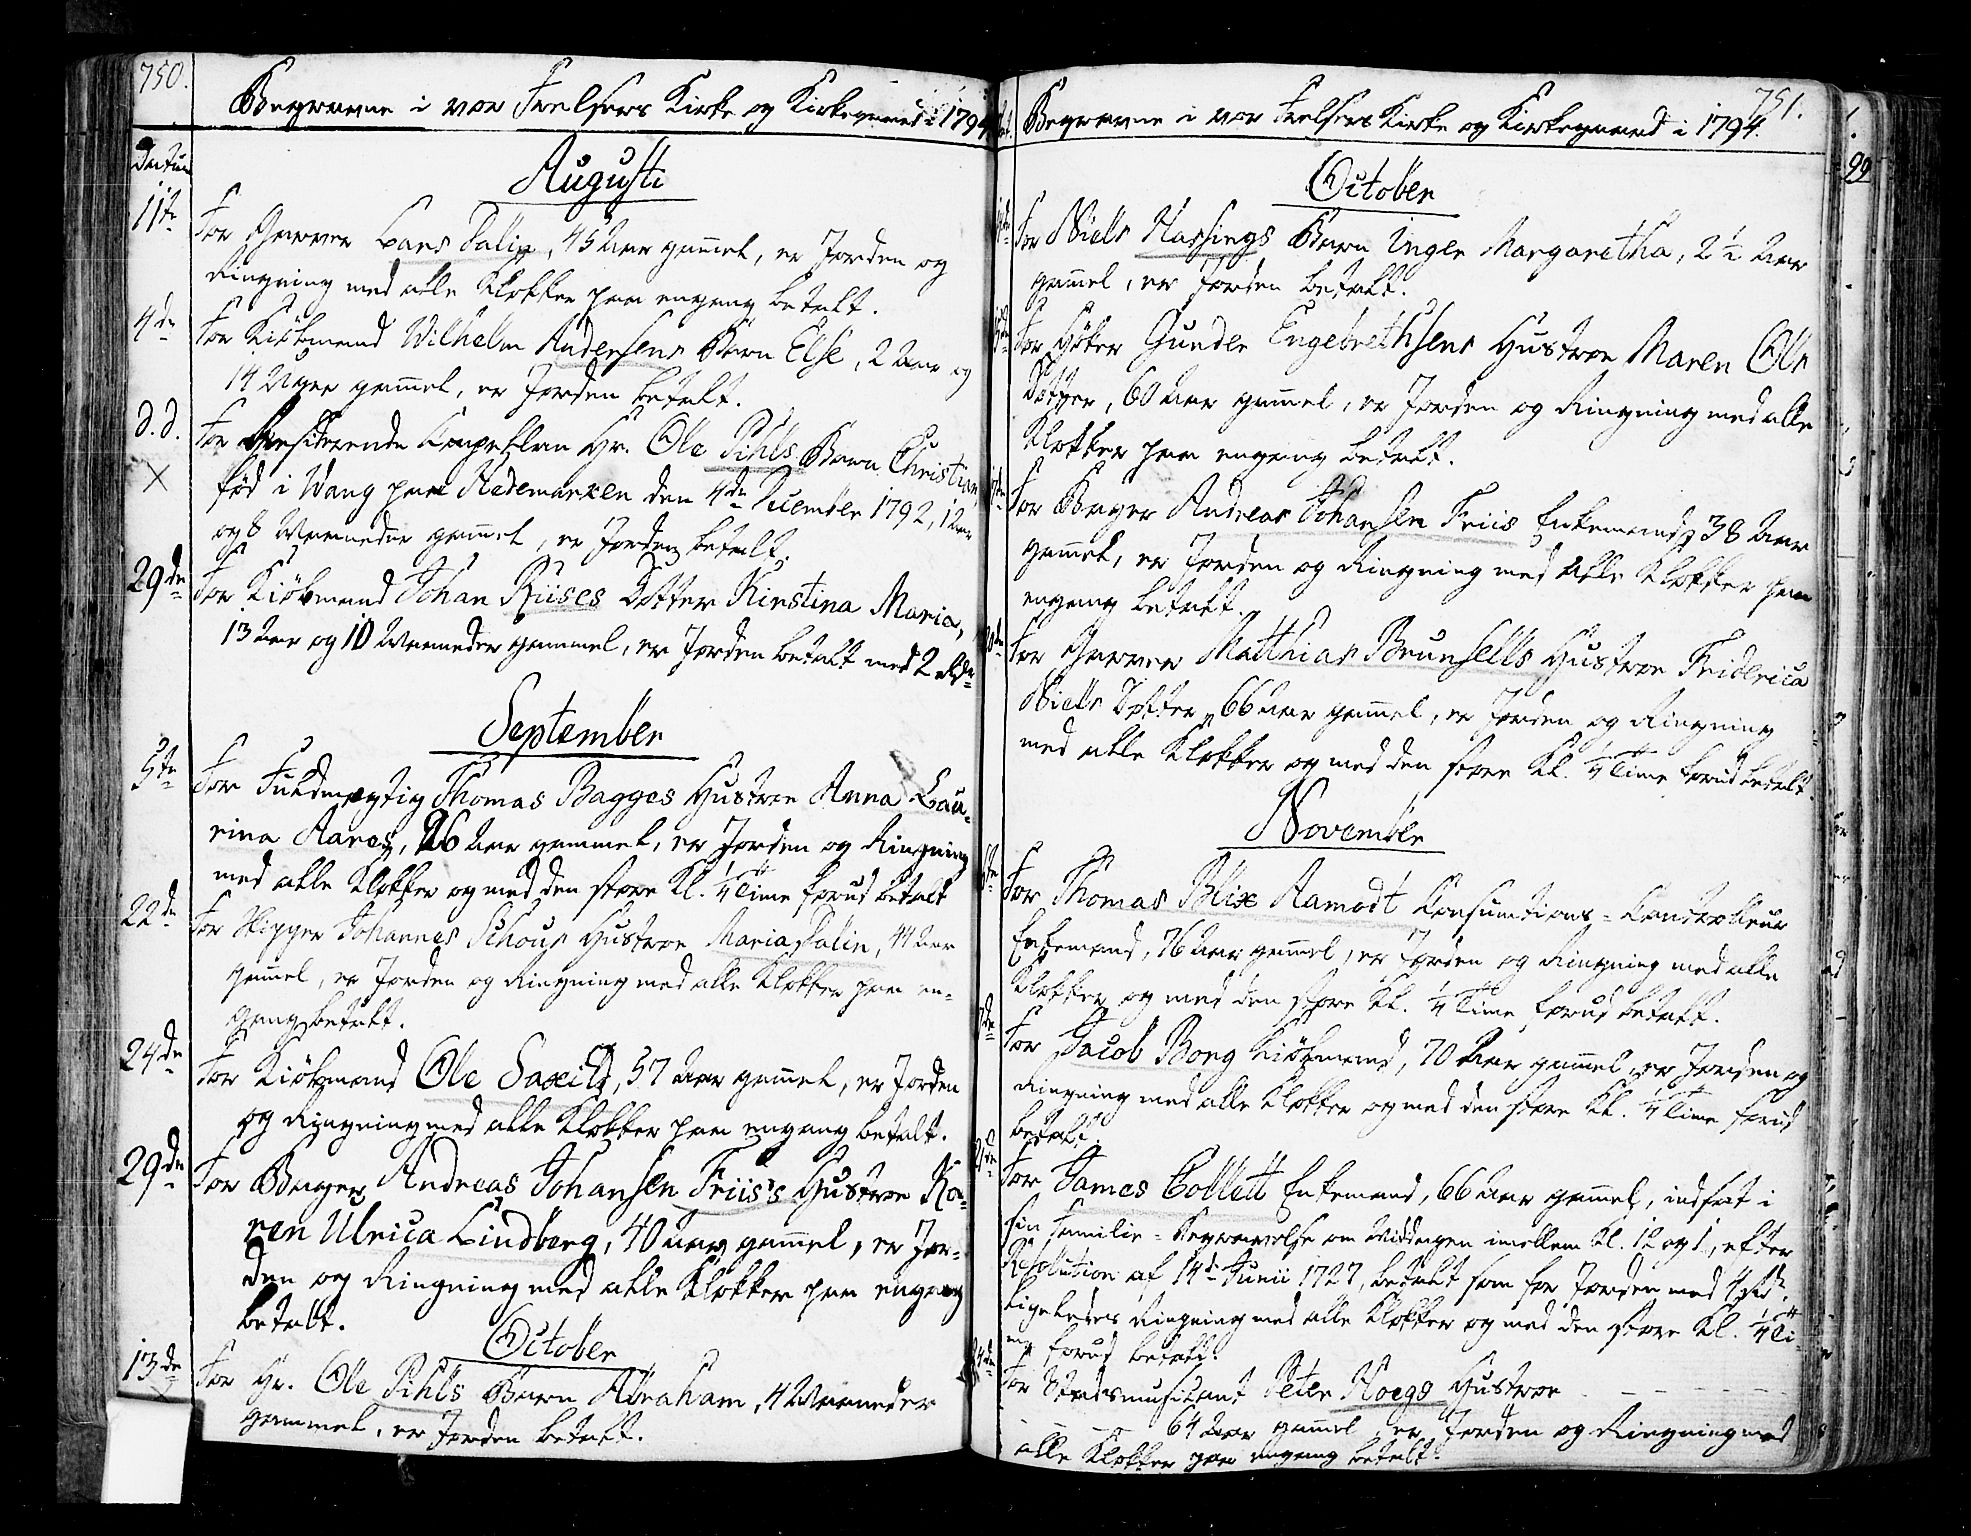 750.
Begravne i vor Frelsers Kirke og Kirkegaard i 1794
Datum
Augusti
11te For Garver Lars Dalin, 45 Aar gam̄el, er Jorden og
Ringning med alle Klokker paa engang betalt.
4de For Kiöbmand Wilhelm Andersens Barn Else, 2 Aar og
14 Uger gam̄el, er Jorden betalt.
d. d. For Residerende Capellan Hr. Ole Pihls Barn Christian,
X fød i Wang paa Hedemarken den 4de December 1792, 1 Aar
og 8 Maaneder gam̄el, er Jorden betalt.
29de For Kiöbmand Johan Riises Dotter Kirstina Maria,
13 Aar og 10 Maaneder gammel, er Jorden betalt med 2 Rdr
September
5te For Fuldmægtig Thomas Bagges Hustroe Anna Lau-
rina Aares, 26 Aar gammel, er Jorden og Ringning
med alle Klokker og med den store Kl. 1/4 Time forud betalt
22de For Skipper Johannes Schous Hustroe Maria Dalin, 41 Aar
gam̄el, er Jorden og Ringning med alle Klokker paa en-
gang betalt.
24de For Kiöbmand Ole Saxild, 57 Aar gam̄el, er Jorden
og Ringning med alle Klokker paa engang betalt.
29de For Bager Andreas Johansen Friis's Hustroe Ka-
ren Ulrica Lindberg, 40 Aar gam̄el, er Jor-
den og Ringning med alle Klokker paa engang
betalt.
October
13de For Hr. Ole Pihls Barn Abraham, 4 Maaneder
gammel, er Jorden betalt.
751.
Begravne i vor Frelsers Kirke og Kirkegaard i 1794.
October
For Niels Hassings Barn Inger Margaretha, 2 1/2 Aar
gam̄el, er Jorden betalt.
For Höker Gunder Engebrethsens Hustroe Maren Ols
Dotter, 60 Aar gam̄el, er Jorden og Ringning med alle
Klokker paa engang betalt.
For Bager Andreas Johansen Friis Enkemand, 38 Aar
gam̄el, er Jorden og Ringning med alle Klokker paa
engang betalt.
For Garver Matthias Brunsells Hustroe Friderica
Niels Dotter, 66 Aar gam̄el, er Jorden og Ringning
med alle Klokker og med den store Kl. 1/4 Time forud betalt.
November
For Thomas Blix Aamodt Consumtions-Controlleur
Enkemand, 76 Aar gam̄el, er Jorden og Ringning med alle
Klokker og med den store Kl. 1/4 Time forud betalt.
For Jacob Borg Kiöbmand, 70 Aar gam̄el, er Jorden og
Ringning med alle Klokker og med den store Kl. 1/4 Time forud
betalt.
For James Collett Enkemand, 66 Aar gam̄el, indsat i
sin Familie-Begravelse om Middagen imellem Kl. 12 og 1, efter
Resolution af 14de Junii 1727, betalt som for Jorden med 4 Rdr,
ligeledes Ringning med alle Klokker og med den store Kl. 1/4 Ti-
me forud betalt.
For Stadsmusicant Peter Hoegs Hustroe - - - - -
- - - 64 Aar gam̄el, er Jorden og Ringning med
alle Klokker paa engang betalt.